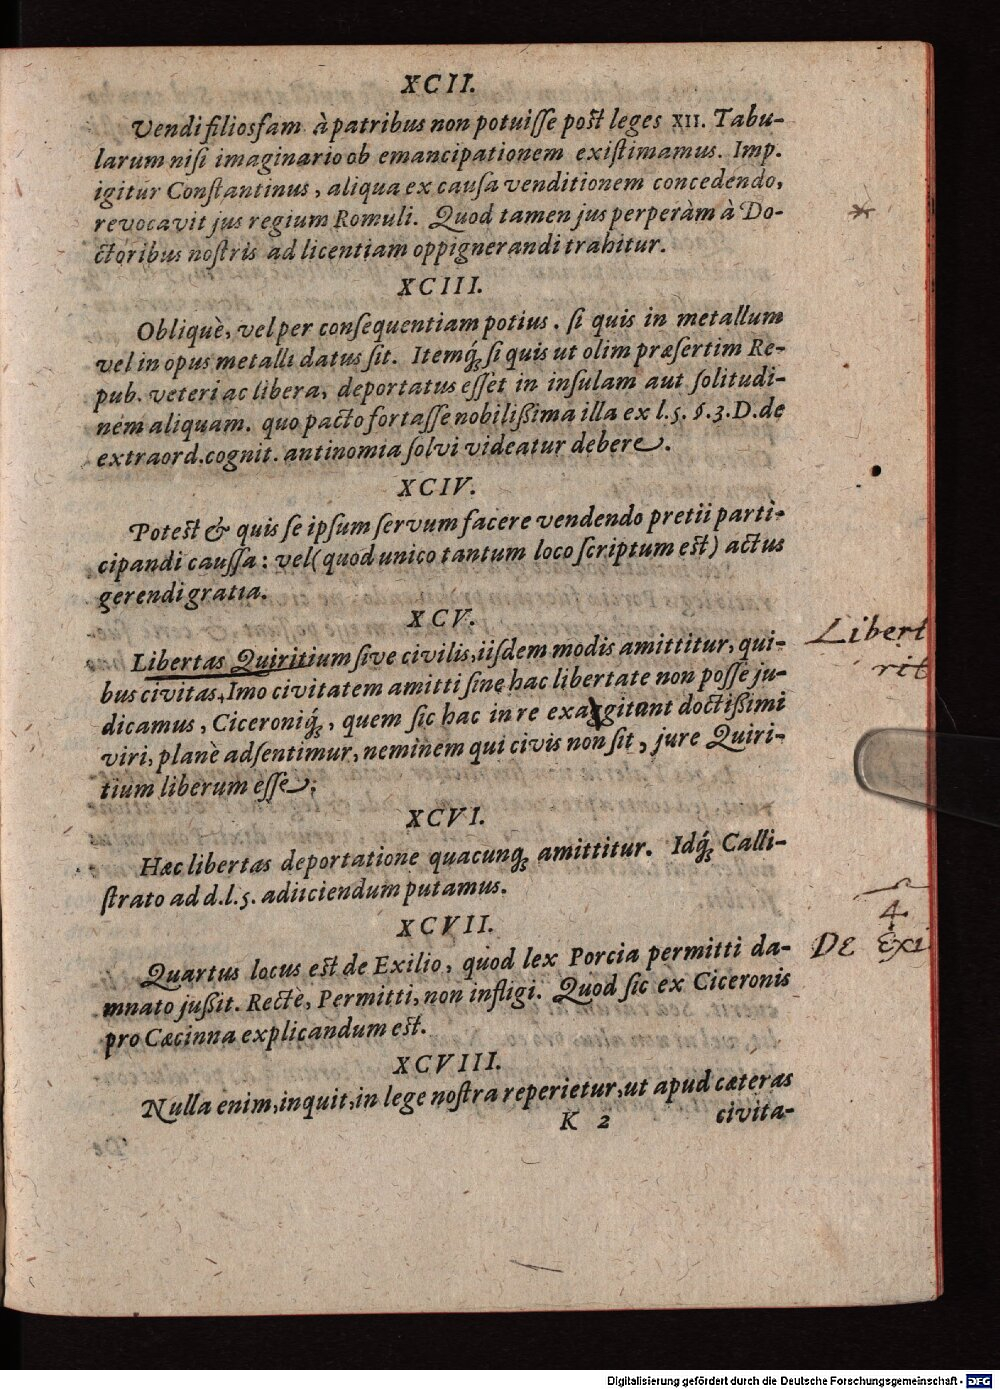 XCII.
Vendi filiosfam à patribus non potuiſſe poſt leges XII. Tabu-
larum niſi imaginario ob emancipationem exiſtimamus. Imp.
igitur Conſtantinus, aliqua ex cauſa venditionem concedendo,
revocavit jus regium Romuli. Quod tamen jus perperàm à Do-
ctoribus noſtris ad licentiam oppignerandi trahitur.
XCIII.
Obliquè, vel per conſequentiam potius. ſi quis in metallum
vel in opus metalli datus ſit. Itemq́; ſi quis ut olim præſertim Re-
pub. veteri ac libera, deportatus eſſet in inſulam aut ſolitudi-
nem aliquam. quo pacto fortaſſe nobilißima illa ex l.5. §.3.D.de
extraord.cognit. antinomia ſolvi videatur debere.
XCIV.
Poteſt & quis ſe ipſum ſervum facere vendendo pretii parti-
cipandi cauſſa: vel (quod unico tantum loco ſcriptum eſt) actus
gerendi gratia.
XCV.
Libertas Quiritium ſive civilis, iiſdem modis amittitur, qui-
bus civitas, Imo civitatem amitti ſine hac libertate non poſſe ju-
dicamus, Ciceroniq́;, quem ſic hac in re exaggitant doctißimi
viri, planè adſentimur, neminem qui civis non ſit, jure Quiri-
tium liberum eſſe.
XCVI.
Hæc libertas deportatione quacunq; amittitur. Idq́; Calli-
ſtrato ad d.l.5. adiiciendum putamus.
XCVII.
Quartus locus eſt de Exilio, quod lex Porcia permitti da-
mnato jußit. Rectè, Permitti, non infligi. Quod ſic ex Ciceronis
pro Cæcinna explicandum eſt.
XCVIII.
Nulla enim, inquit, in lege noſtra reperietur, ut apud cæteras
K 2 civita-
Libert
rit
4.
DE Exi
Digitalisierung gefördert durch die Deutsche Forschungsgemeinschaft - DFG